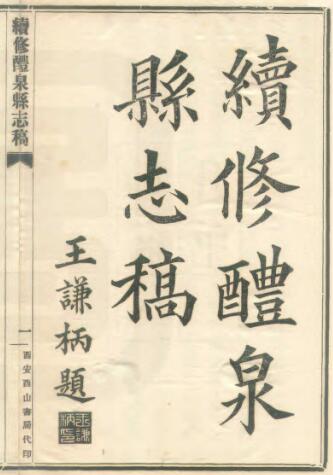 續修醴泉
縣志稿
王謙柄題
續修醴泉縣志稿
一
西安酉山書局代印